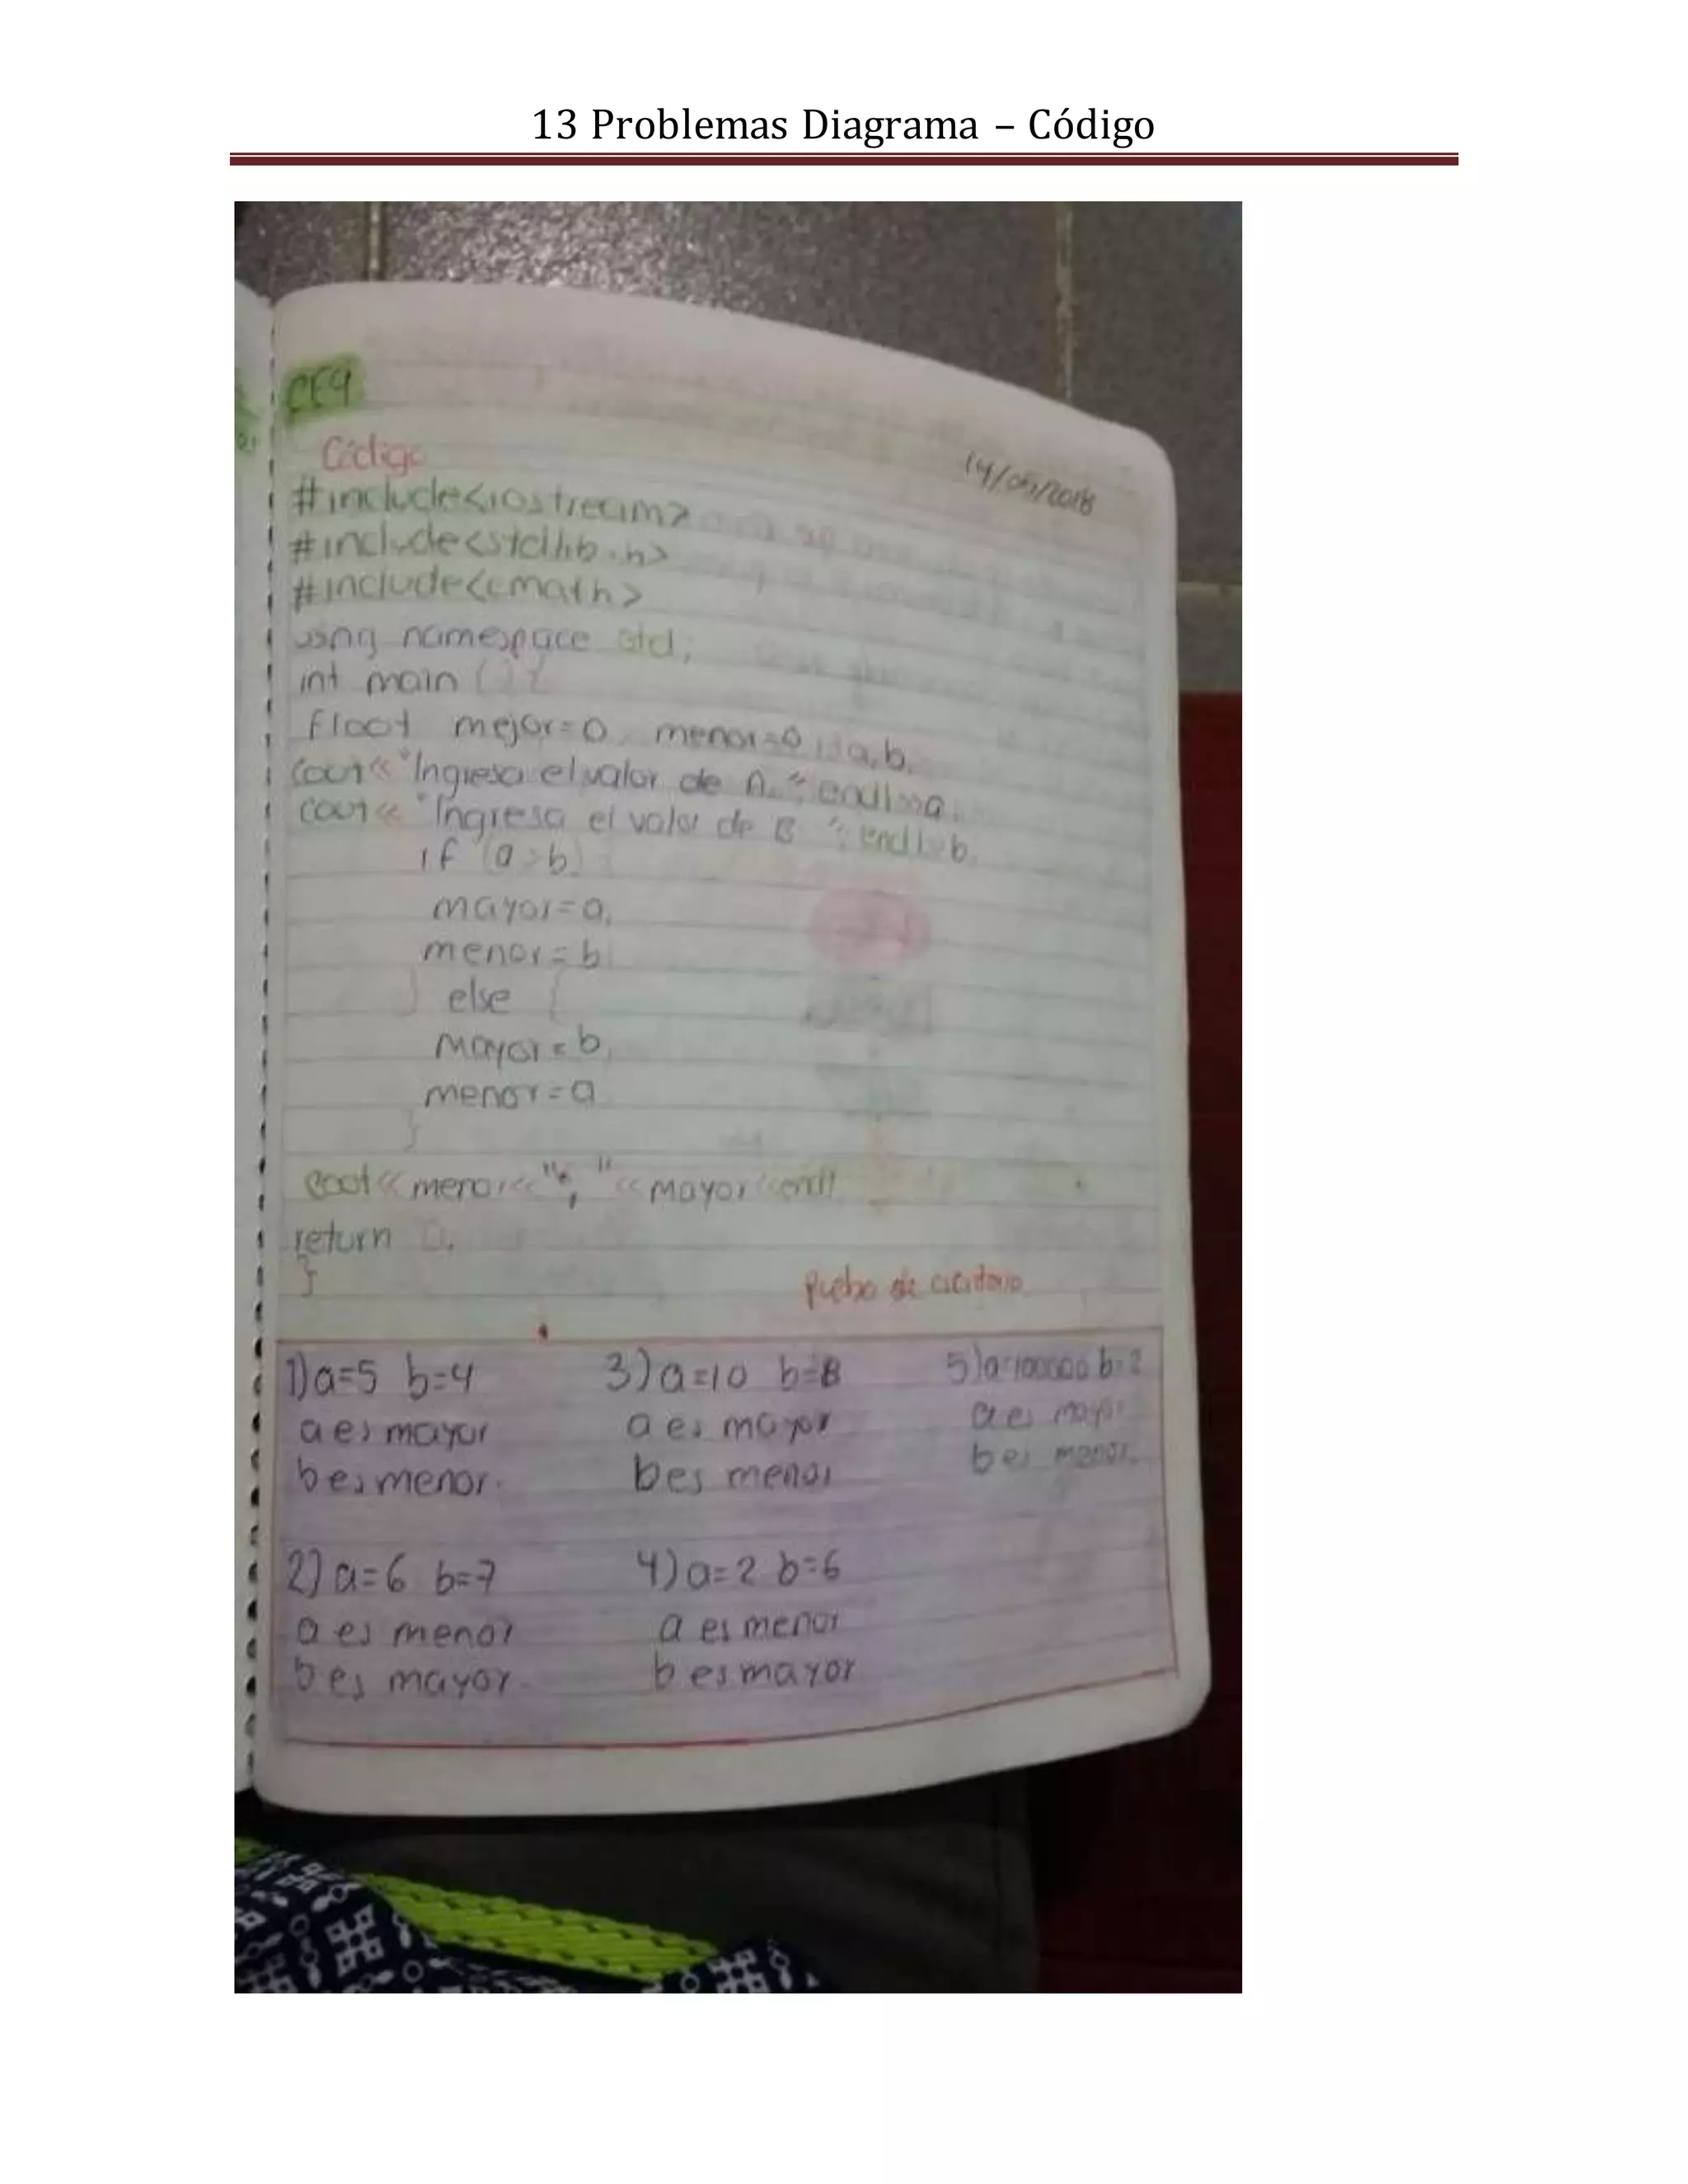 13 Problemas Diagrama – Código
Código
14/05/2018
#include<iostream>
#include<stdlib.h>
#include<cmath>
using namespace std;
int main(){
float mejor=0, menor=0, a,b;
cout<<"Ingresa el valor de A." endl>>a;
cout<<"Ingresa el valor de B" endl>>b;
if (a>b){
mayor=a;
menor=b;
} else {
mayor=b;
menor=a
}
cout<<menor<<", "<<mayor<<endl
return 0;
}
1)a=5 b=4
a es mayor
b es menor.
3)a=10 b=8
a es mayor
b es menor
5)a=100000 b=2
a es mayor
b es menor.
2)a=6 b=7
a es menor
b es mayor.
4)a=2 b=6
a es menor
b es mayor